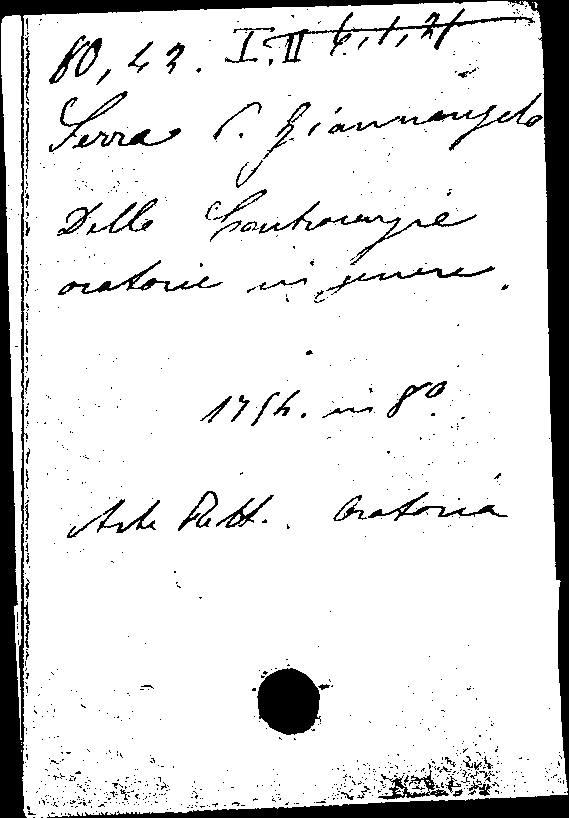 80, 42. I. II 6, 1, 21
Serra P. Giannangelo
Delle Contrarie
oratorie in genere.
1754. in 8º
Arte Rett. Oratoria